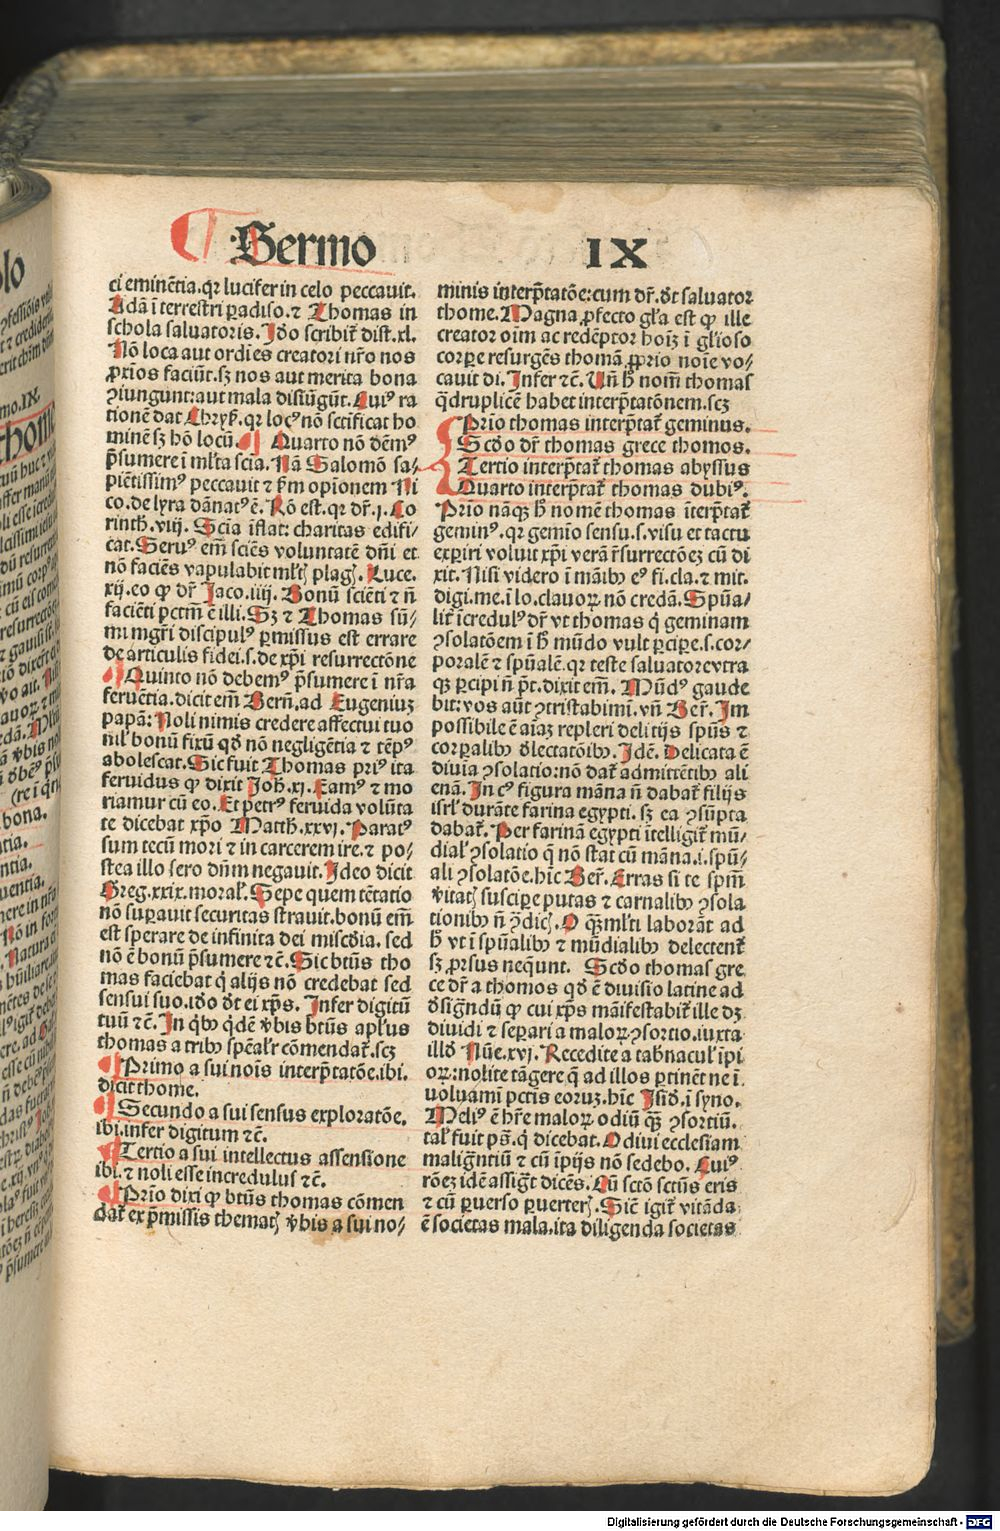 Sermo IX
ci eminētia.qꝛ lucifer in celo peccauit.
Adā ī terrestri paradiso.⁊ Thomas in
schola saluatoris. Jdo scribit̄ dist.xl.
Nō loca aut ordīes creatori nr̄o nos
ꝓxīos faciūt.sꝫ nos aut merita bona
ↄiungunt:aut mala disiūgūt. Cuiꝰ ra
tionē dat Chryſ. qꝛ locꝰ nō sctīficat ho
minē sꝫ hō locū. Quarto nō dēmꝰ
p̄sumere ī ml̄ta scīa. Nā Salomō sa⸗
piētissimꝰ peccauit ⁊ ẜm opīonem Ni
co.de lyra dānatꝰ ē. Rō est.qꝛ dr̄.j. Co
rinth̄.viij. Scīa īflat: charitas edifi⸗
cat. Seruꝰ em̄ sciēs voluntatē dn̄i et
nō faciēs vapulabit ml̄tꝭ plagꝭ. Luce.
xij.eo ꝙ dr̄ Jaco.iiij. Bonū sciēti ⁊ n̄
faciēti pctm̄ ē illi. Sꝫ ⁊ Thomas sū⸗
mi mgr̄i discipulꝰ ꝑmissus est errare
de articulis fidei.s.de xp̄i resurrectōne
Quinto nō debemꝰ p̄sumere ī nr̄a
feruētia.dicit em̄ Bern̄.ad Eugeniuꝫ
papā: Noli nimis credere affectui tuo
nil' bonū fixū qd̄ nō negligētia ⁊ tēpꝰ
abolescat. Sic fuit Thomas priꝰ ita
feruidus ꝙ dixit Joh̄.xj. Eamꝰ ⁊ mo
riamur cū eo. Et petrꝰ feruida volūta
te dicebat xp̄o Matth̄.xxvj. Paratꝰ
sum tecū mori ⁊ in carcerem ire.⁊ po⸗
stea illo sero dn̄m negauit. Jdeo dicit
Greg.xxix.moral̄. Sepe quem tētatio
nō suꝑauit securitas strauit.bonū em̄
est sperare de infinita dei miscd̄ia. sed
nō ē bonū p̄sumere ⁊c̄. Sic btūs tho
mas faciebat q̇ alijs nō credebat sed
sensui suo.ido d̄t ei xp̄s. Jnfer digitū
tuū ⁊c̄. Jn q̇bꝫ q̇dē v̄bis btūs apl̄us
thomas a tribꝫ spēal'r cōmendat̄.scꝫ
Primo a sui nois interp̄tatōe.ibi.
dicit thome.
Secundo a sui sensus exploratōe.
ibi.infer digitum ⁊c̄.
Tertio a sui intellectus assensione
ibi.⁊ noli esse incredulus ⁊c̄.
Prīo dixi ꝙ btūs thomas cōmen
dat̄ ex p̄missis thematꝭ v̄bis a sui no⸗
minis interp̄tatōe:cum dr̄.d̄t saluator
thome. Magna ꝓfecto gl̄a est ꝙ ille
creator oīm ac redēptor hoīꝫ ī gl̄ioso
corꝑe resurgēs thomā ꝓprio noīe vo⸗
cauit di. Jnfer ⁊c̄. Vn̄ h̄ nom̄ thomas
q̄druplicē habet interp̄tatōnem.scꝫ
Prīo thomas interp̄tat̄ geminus.
Scd̄o dr̄ thomas grece thomos.
Tertio interp̄tat̄ thomas abyssus
Quarto interp̄tat̄ thomas dubiꝰ.
Prīo nāqꝫ h̄ nomē thomas īterp̄tat̄
geminꝰ.qꝛ gemīo sensu.s.visu et tactu
exꝑiri voluit xp̄i verā r̄surrectōeꝫ cū di
xit. Nisi videro ī māibꝫ eꝰ fi.cla.⁊ mit.
digi.me.ī lo.clauoꝝ nō credā. Spūa⸗
lit̄ īcredulꝰ dr̄ vt thomas q̇ geminam
ↄsolatōem ī h̄ mūdo vult ꝑciꝑe.s.cor⸗
poralē ⁊ spūalē.qꝛ teste saluatore vtra
qꝫ ꝑcipi n̄ p̄t.dixit em̄. Mūdꝰ gaude
bit:vos aūt ↄtristabimī.vn̄ Ber̄. Jm
possibile ē aīaꝫ repleri delitijs spūs ⁊
corꝑalibꝫ d̄lectatōibꝫ. Jdē. Delicata ē
diuīa ↄsolatio:nō dat̄ admittētibꝫ ali
enā. Jn cꝰ figura māna n̄ dabat̄ filijs
isrl' durāte farina egypti. sꝫ ea ↄsūpta
dabat̄. Per farinā egypti ītelligit̄ mū⸗
dial' ↄsolatio q̄ nō stat cū māna.i.spū⸗
ali ↄsolatōe.hīc Ber̄. Erras si te spm̄
vitatꝭ susciꝑe putas ⁊ carnalibꝫ ↄsola
tionibꝫ n̄ ↄ̄dicꝭ. O q̄ꝫ ml̄ti laborāt ad
h̄ vt ī spūalibꝫ ⁊ mūdialibꝫ delectent̄
sꝫ ꝓrsus neq̄unt. Scd̄o thomas gre
ce dr̄ a thomos qd̄ ē diuisio latine ad
d̄signdū ꝙ cui xp̄s māifestabit̄ ille dꝫ
diuidi ⁊ seꝑari a maloꝝ ↄsortio.iuxta
illd̄ Nūe.xvj. Recedite a tab̄nacul' īpi
oꝝ:nolite tāgere q̄ ad illos ꝑtinēt ne ī
uoluamī pctīs eoruꝫ.hīc Jsid̄.ī syno.
Meliꝰ ē hr̄e maloꝝ odiū q̄ꝫ ↄsortiū.
tal' fuit ps̄.q̇ dicebat. Odiui ecclesiam
maligntiū ⁊ cū īpijs nō sedebo. Cuiꝰ
rōeꝫ idē assigt̄ dicēs. Cū sctō sctūs eris
⁊ cū ꝑuerso ꝑuerterꝭ. Sic̄ igit̄ vitāda
ē societas mala.ita diligenda societas
Digitalisierung gefördert durch die Deutsche Forschungsgemeinschaft - DFG